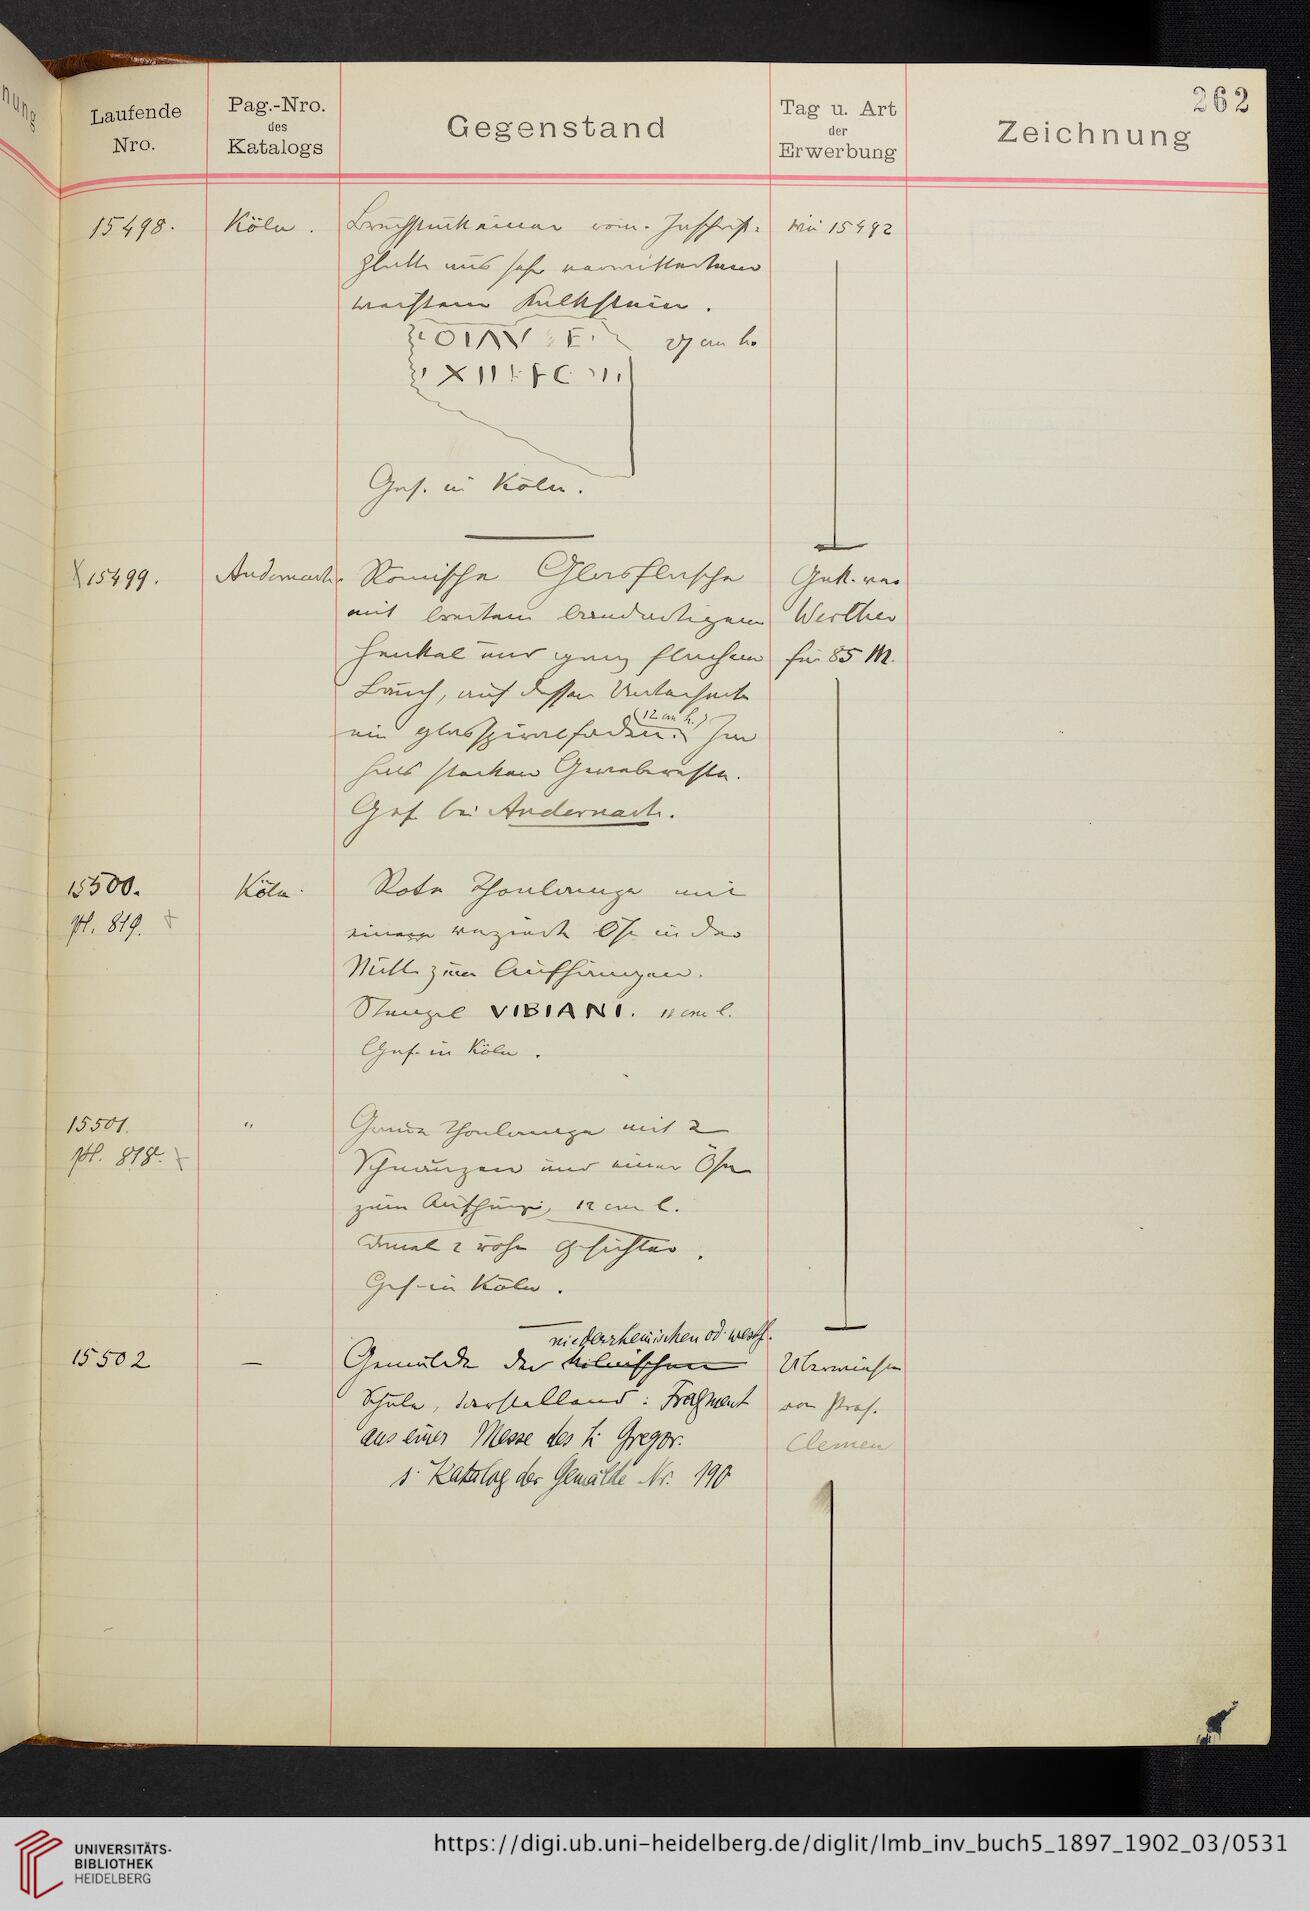 262
Laufende Nro.
Pag.-Nro. des Katalogs
Gegenstand
Tag u. Art der Erwerbung
Zeichnung
15498.
Köln.
Bruchstück einer röm. Inschrift-
wie 15492
platte aus sehr verwittertem
weissem Kalkstein.
27 cm h.
Gef. in Köln.
X 15499.
Andernach.
Römische Glasflasche
Gek. von
mit breitem bandartigem
Werther
Henkel und ganz flachem
für 85 M.
Bauch, auf dessen Unterseite
(12 cm h.)
ein glasspiralfaden. Im
Hals stecken Gewebereste.
Gef. bei Andernach.
15500.
Köln.
Rote Thonlampe mit
pl. 819.
einer verzierten Öse in der
Mitte zum Aufhängen.
Stempel VIBIANI. 11 cm l.
Gef. in Köln.
15501.
"
Graue Thonlampe mit 2
pl. 818.
Schnauzen und einer Öse
zum Aufhängen, 12 cm l.
2 rohe Gesichter.
Gef. in Köln.
niederrheinischen od. westf.
15502
—
Gemälde der kölnischen
Überwiesen
Schule, darstellend: Fragment
von Prof.
aus einer Messe des h. Gregor.
Clemen
s. Katalog der Gemälde Nr. 190
UNIVERSITÄTS-
BIBLIOTHEK
HEIDELBERG
https://digi.ub.uni-heidelberg.de/diglit/lmb_inv_buch5_1897_1902_03/0531